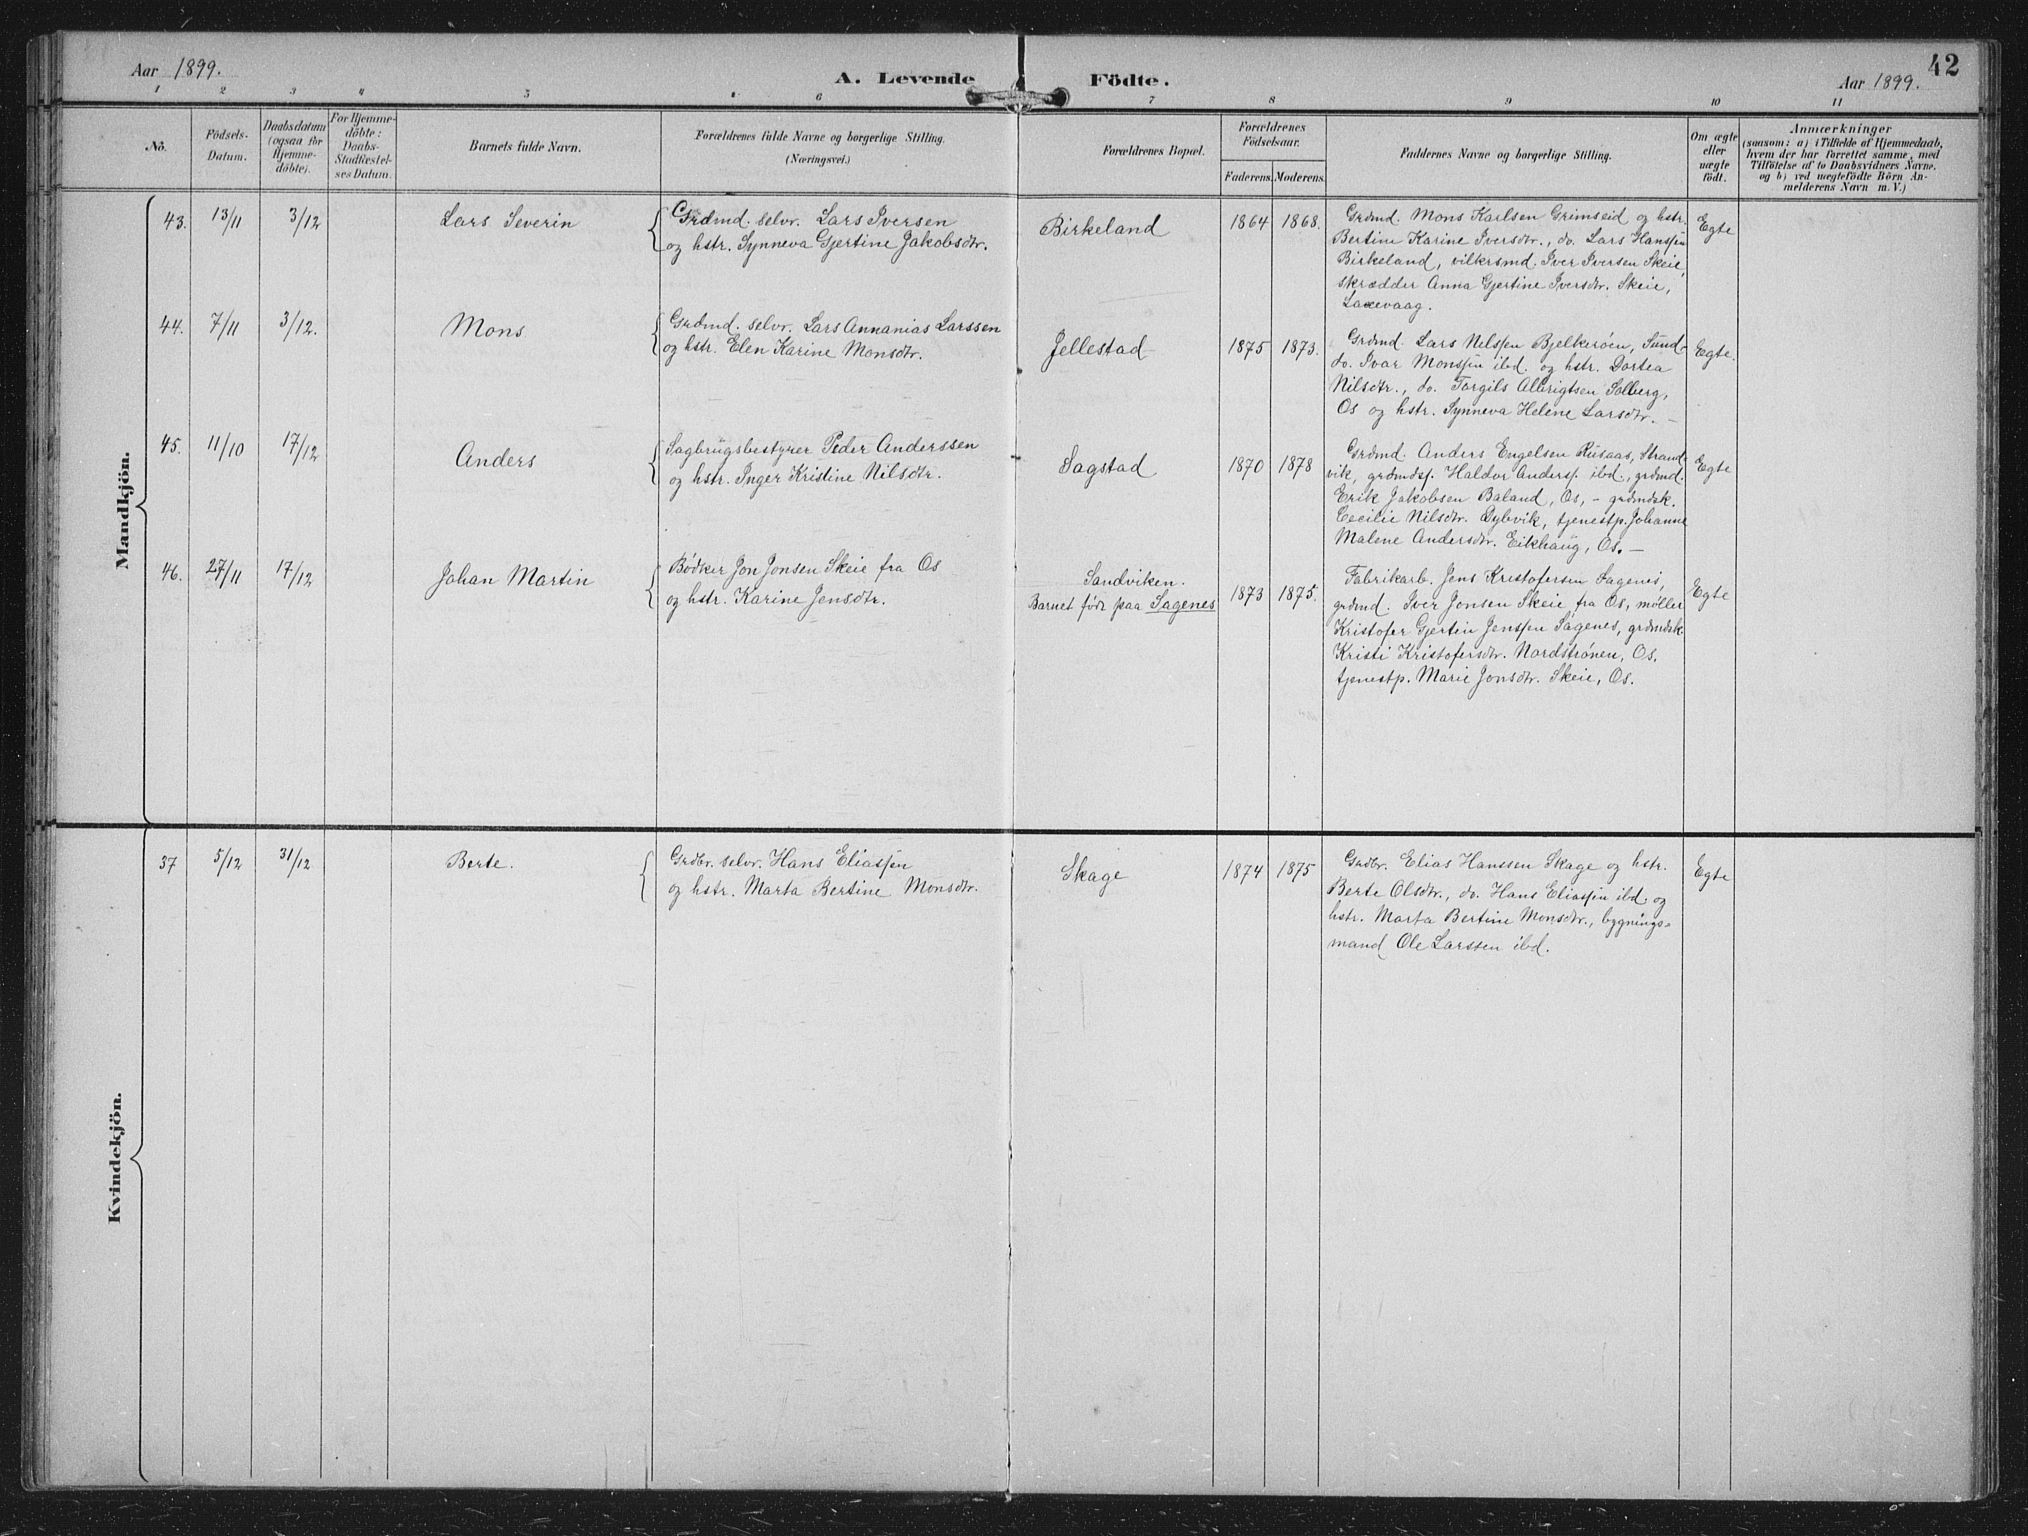 Aar 1899.
A. Levende Födte.
Aar 1899.
42
1 2 3 4 5 6 7 8 9 10 11
No.
Födsels-
Datum.
Daabsdatum
(ogsaa for
Hjemme-
döbte).
For Hjemme-
döbte:
Daabs-
Stadfæstel-
ses Datum.
Barnets fulde Navn.
Forældrenes fulde Navne og borgerlige Stilling.
(Næringsvei.)
Forældrenes Bopæl.
Forældrenes
Födselsaar.
Faderens. Moderens.
Faddernes Navne og borgerlige Stilling.
Om ægte
eller
uægte
födt.
Anmærkninger
(saasom: a) i Tilfælde af Hjemmedaab,
hvem der har forrettet samme, med
Tilföielse af to Daabsvidners Navne,
og b) ved uægtefödte Börn An-
melderens Navn m. V.)
Mandkjön.
43. 13/11 3/12 Lars Severin
Grdmd. selvr. Lars Iversen
og hstr. Synneva Gjertine Jakobsdtr.
Birkeland 1864 1868.
Grdmd. Mons Karlsen Grimseid og hstr.
Bertine Karine Iversdtr., do. Lars Hanssen
Birkeland, vilkrsmd. Iver Iversen Skeie,
skrædder Anna Gjertine Iversdtr. Skeie,
Laxevaag.
Egte
44. 7/11 3/12. Mons
Grdmd. selvr. Lars Annanias Larssen
og hstr. Elen Karine Monsdtr.
Jellestad 1875 1873.
Grdmd. Lars Nelssen Bjelkerøen, Sund-
do. Ivar Monssen ibd. og hstr. Dortea
Nilsdtr., do. Torgils Albrigtsen Solberg,
Os og hstr. Synneva Helene Larsdtr. –
Egte.
45. 11/10 17/12 Anders
Sagbrugsbestyrer Peder Anderssen
og hstr. Inger Kristine Nilsdtr.
Sagstad 1870 1878
Grdmd. Anders Engelsen Rusaas, Strand-
vik, grdmdsf. Haldor Andersf. ibd., grdmd.
Erik Jakobsen Baland, Os, – grdmdsk.
Cecilie Nilsdtr. Dybvik, tjenestp. Johanne
Malene Andersdtr. Eikhaug, Os. –
Egte
46. 27/11 17/12 Johan Martin
Bødker Jon Jonsen Skeie fra Os
og hstr. Karine Jensdtr.
Sandviken.
Barnet født paa Sagenes
1873 1875.
Fabrikarb. Jens Kristofersen Sagenes,
grdmd. Iver Jonsen Skeie fra Os, møller
Kristofer Gjertin Jenssen Sagenes, grdmdsk.
Kristi Kristofersdtr. Nordstrønen, Os,
tjenestp. Marie Jonsdtr. Skeie, Os.
Egte
Kvindekjön.
37 5/12 31/12 Berte.
Grdbr. selvr. Hans Eliassen
og hstr. Marta Bertine Monsdtr.
Skage 1874 1875
Grdbr. Elias Hanssen Skage og hstr.
Berte Olsdtr., do. Hans Eliassen ibd. og
hstr. Marta Bertine Monsdtr., bygnings-
mand Ole Larssen ibd.
Egte